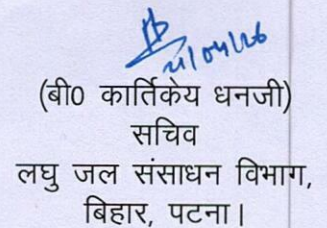 21/04/26
(बी0 कार्तिकेय धनजी)
सचिव
लघु जल संसाधन विभाग,
बिहार, पटना।